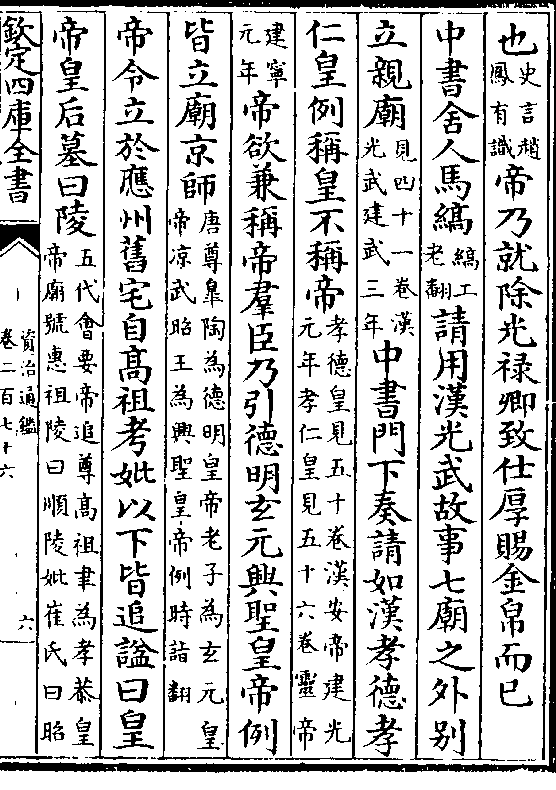 也史言趙鳳有識帝乃就除光禄卿致仕厚賜金帛而已
中書舍人馬縞縞工老翻請用漢光武故事七廟之外别
立親廟見四十一卷漢光武建武三年中書門下奏請如漢孝德孝
仁皇例稱皇不稱帝孝德皇見五十卷漢安帝建光元年孝仁皇見五十六卷靈帝
建寧元年帝欲兼稱帝羣臣乃引德明玄元興聖皇帝例
皆立廟京師唐尊臯陶為德明皇帝老子為玄元皇帝凉武昭王為興聖皇帝例時詣翻
帝令立於應州舊宅自髙祖考妣以下皆追諡曰皇
帝皇后墓曰陵五代會要帝追尊髙祖聿為孝恭皇帝廟號惠祖陵曰順陵妣崔氏曰昭
欽定四庫全書
資治通鑑
卷二百七十六
六